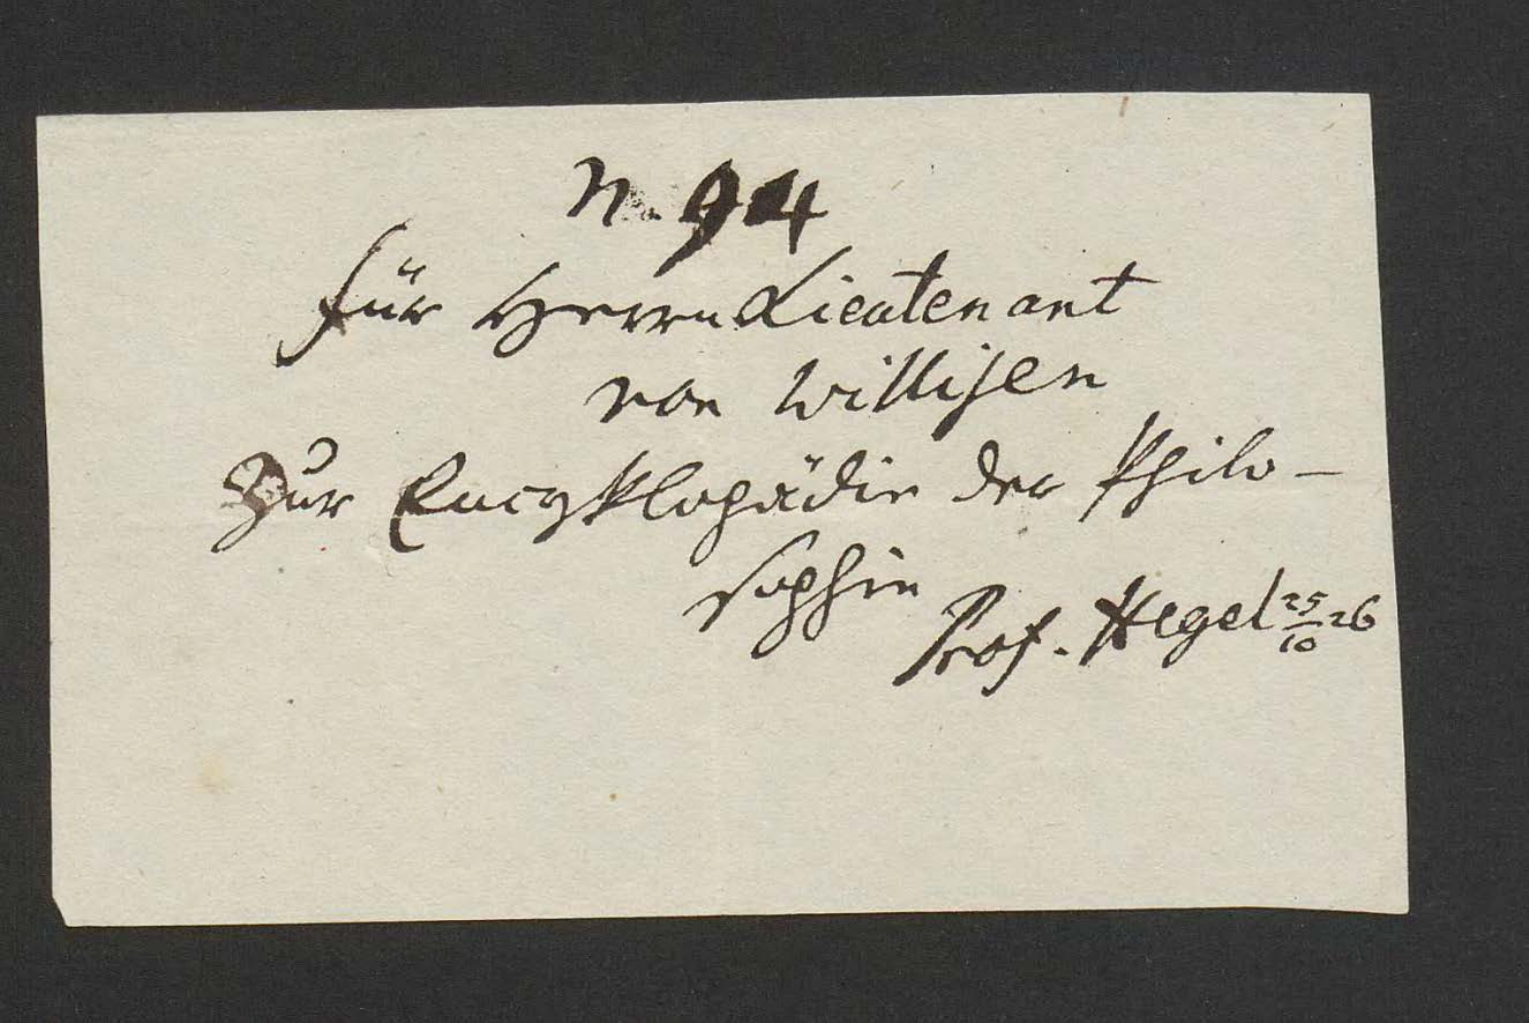 N. 94
Für Herrn Lieutenant
von Willisen
Zur Encyklopädie der Philo-
sophie
Prof. Hegel 25/10 26